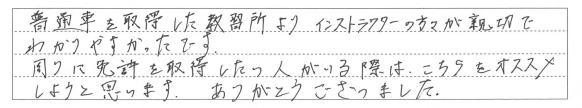 普通車を取得した教習所より インストラクターの方々が親切で
わかりやすかったです.
周りに免許を取得したい人がいる際は、こちらをオススメ
しようと思います. ありがとうございました.